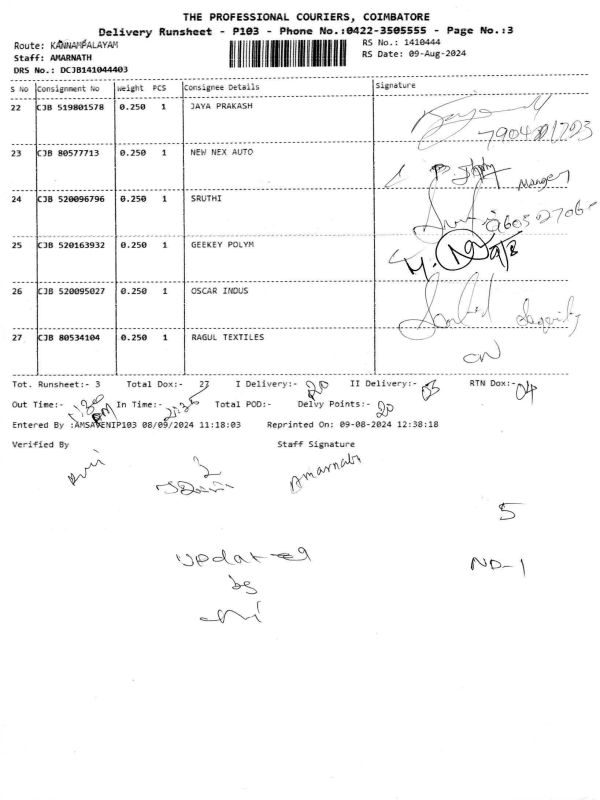 THE PROFESSIONAL COURIERS, COIMBATORE
Delivery Runsheet - P103 - Phone No.:0422-3505555 - Page No.:3
Route: KANNAMPALAYAM
RS No.: 1410444
Staff: AMARNATH
RS Date: 09-Aug-2024
DRS No.: DCJB141044403
S No Consignment No Weight PCS Consignee Details Signature
22 CJB 519801578 0.250 1 JAYA PRAKASH
23 CJB 80577713 0.250 1 NEW NEX AUTO
Manager
24 CJB 520096796 0.250 1 SRUTHI
25 CJB 520163932 0.250 1 GEEKEY POLYM
26 CJB 520095027 0.250 1 OSCAR INDUS
27 CJB 80534104 0.250 1 RAGUL TEXTILES
Tot. Runsheet:- 3 Total Dox:- 27 I Delivery:- 20 II Delivery:- 03 RTN Dox:- 04
Out Time:- In Time:- Total POD:- Delvy Points:- 20
Entered By :AMSAVENIP103 08/09/2024 11:18:03 Reprinted On: 09-08-2024 12:38:18
Verified By Staff Signature
Amarnath
5
Updated
ND-1
by